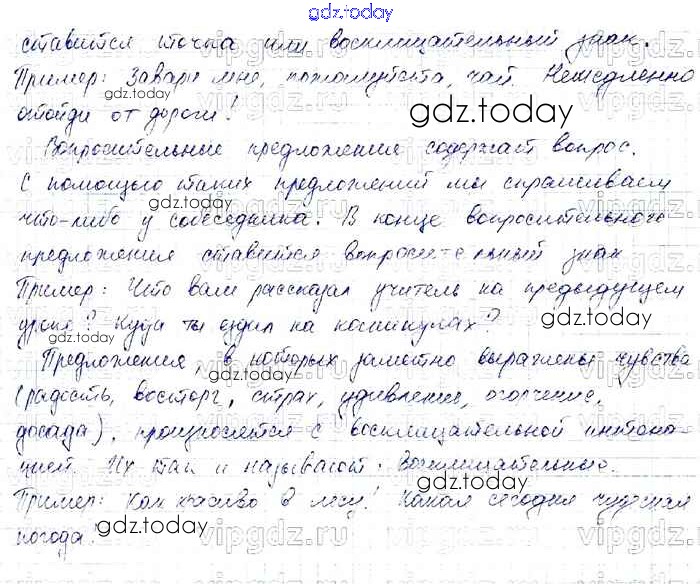 gdz.today
ставится точка или восклицательный знак.
Пример: Завари мне, пожалуйста, чай. Немедленно
отойди от дороги!
gdz.today
Вопросительные предложения содержат вопрос.
С помощью таких предложений мы спрашиваем
что-либо у собеседника. В конце вопросительного
предложения ставится вопросительный знак
Пример: Что вам рассказал учитель на предыдущем
уроке? Куда ты ездил на каникулах?
gdz.today
Предложения, в которых заметно выражены чувства
gdz.today
(радость, восторг, страх, удивление, огорчение,
досада), произносятся с восклицательной интона-
цией. Их так и называют: Восклицательные.
Пример: Как красиво в лесу! Какая сегодня чудесная
gdz.today
погода!
gdz.today
vipgdz.ru